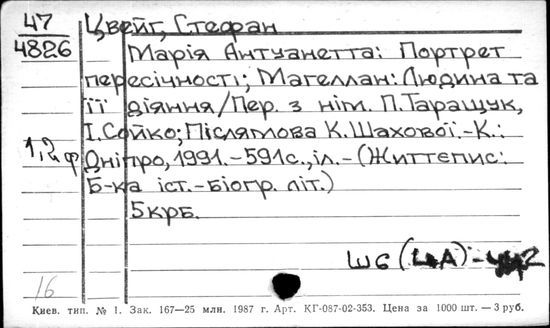 47
4826
Цвейг, Стефан
Марія Антуанетта: Портрет
пересічності; Магеллан: Людина та
її діяння/Пер. з нім. П.Таращук,
І.Сойко; Післямова К.Шахової.-К.:
Дніпро, 1991.-591с.,іл.-(Життєпис:
Б-ка іст.-біогр. літ.)
5крб.
1,2ф
Ш6(4А)-4
16
Киев. тип. № 1. Зак. 167—25 млн. 1987 г. Арт. КГ-087-02-353. Цена за 1000 шт. — 3 руб.